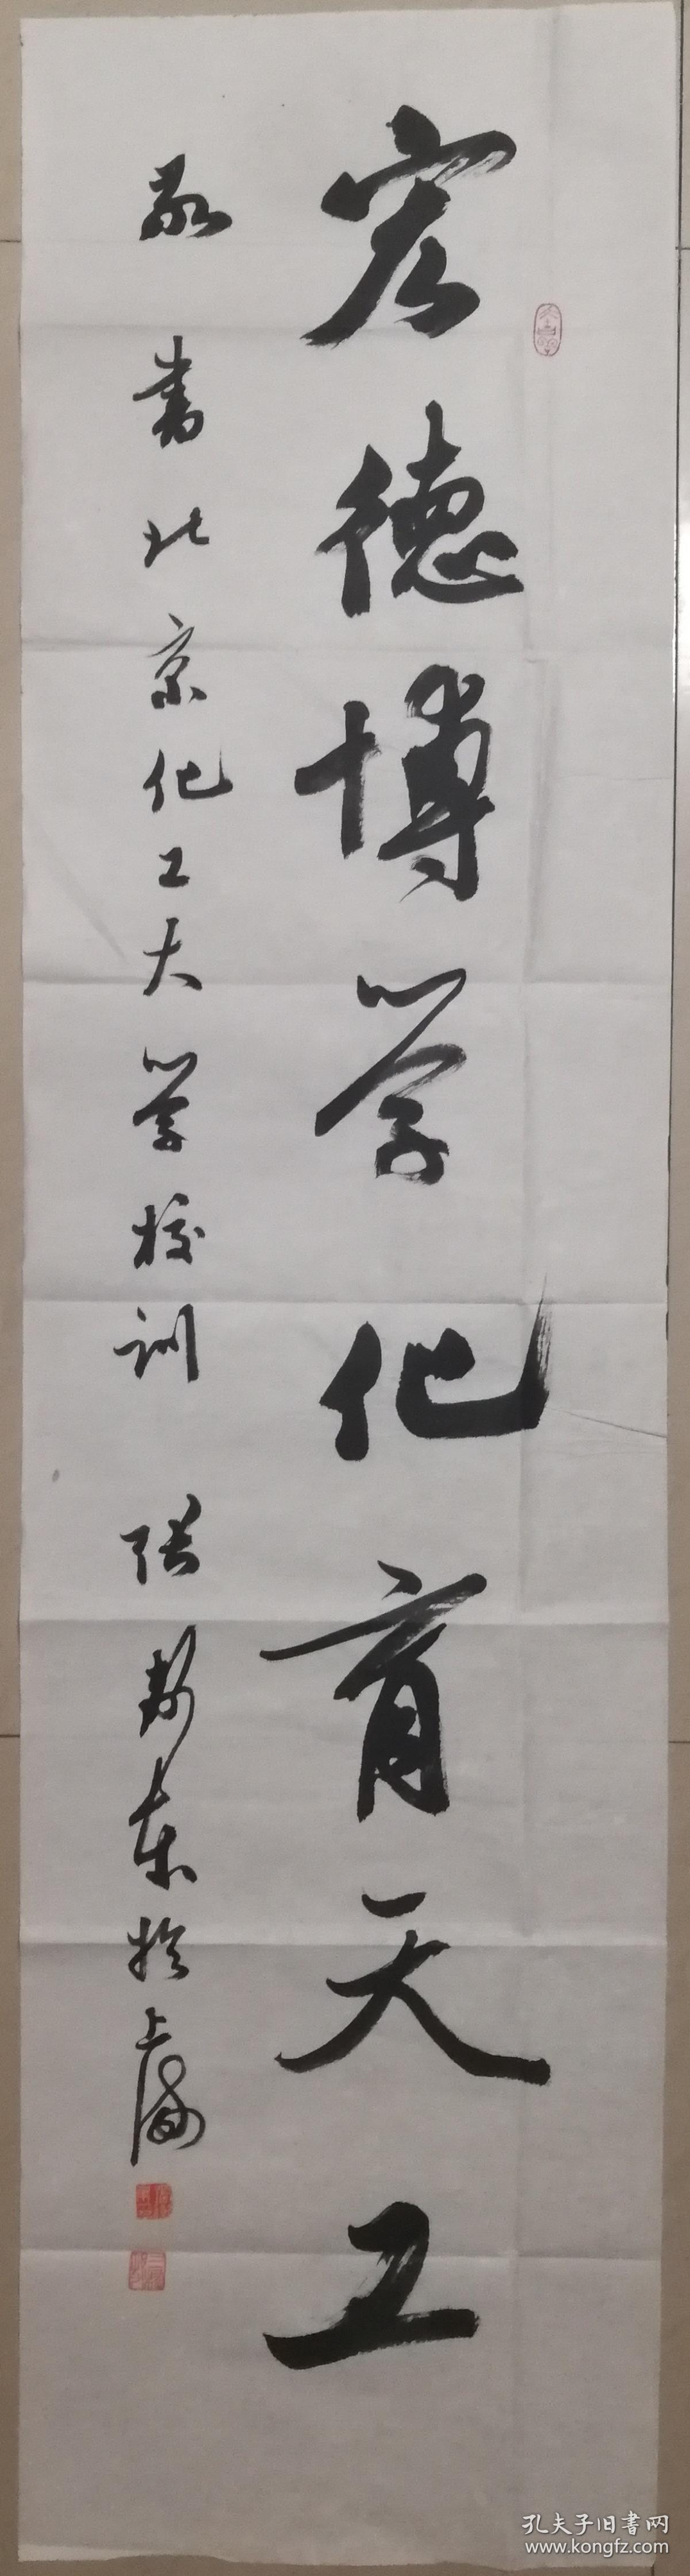 宏德博学化育天工
敬书北京化工大学校训 张 东于上海
孔夫子旧书网
www.kongfz.com